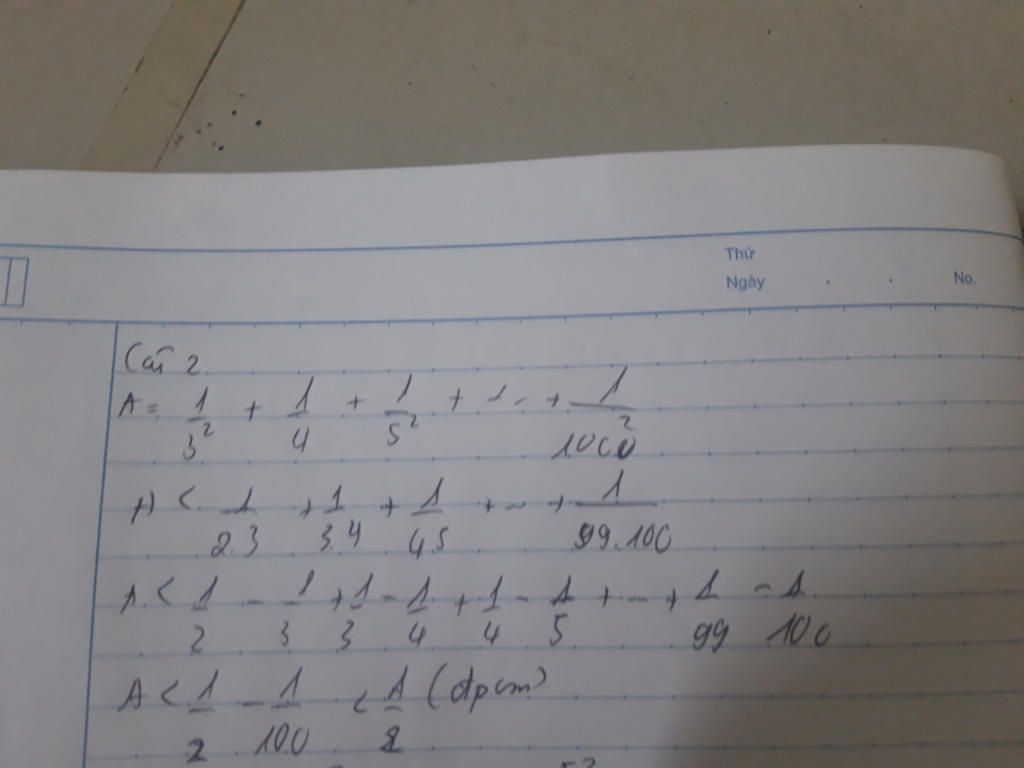 Thứ
Ngày . . No.
Câu 2
A = 1/3² + 1/4 + 1/5² + ... + 1/1000²
A < 1/2.3 + 1/3.4 + 1/4.5 + ... + 1/99.100
A < 1/2 - 1/3 + 1/3 - 1/4 + 1/4 - 1/5 + ... + 1/99 - 1/100
A < 1/2 - 1/100 < 1/2 (đpcm)